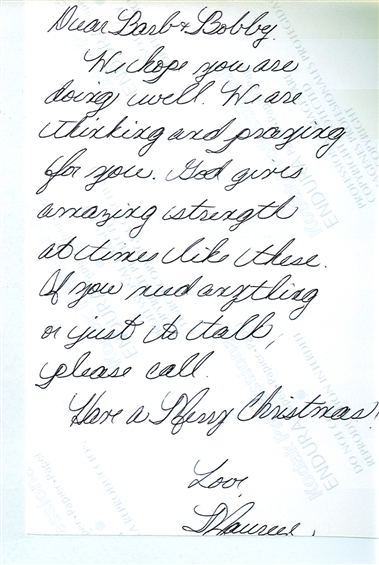 Dear Barb & Bobby.
We hope you are
doing well. We are
thinking and praying
for you. God gives
amazing strength
at times like these.
If you need anything
or just to talk,
please call.
Have a Merry Christmas!
Love,
Maureen.
ENDURA
ENDURA
ENDURA